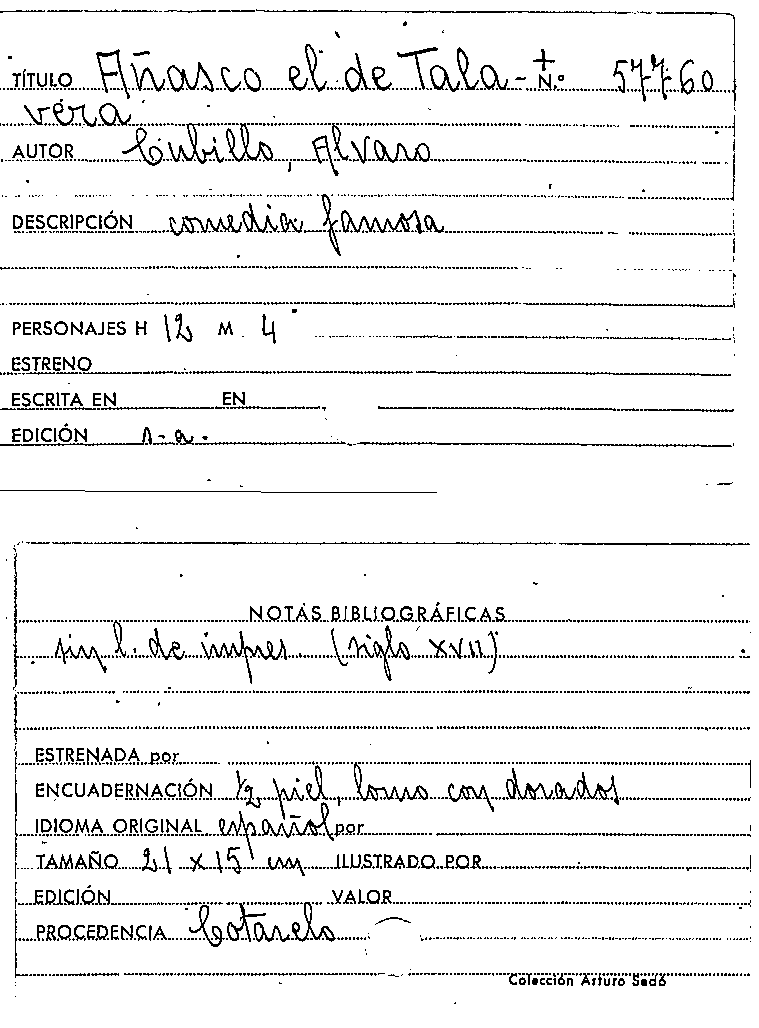 TÍTULO Añasco el de Tala- + N.º 57760
vera
AUTOR Cubillo, Alvaro
DESCRIPCIÓN comedia famosa
PERSONAJES H 12 M. 4
ESTRENO
ESCRITA EN EN
EDICIÓN s-a.
NOTAS BIBLIOGRÁFICAS
sin l. de impres. (siglo XVII)
ESTRENADA por
ENCUADERNACIÓN 1/2 piel, lomo con dorados
IDIOMA ORIGINAL español por
TAMAÑO 21 x 15 cm ILUSTRADO POR
EDICIÓN VALOR
PROCEDENCIA Cotarelo
Colección Arturo Sedó